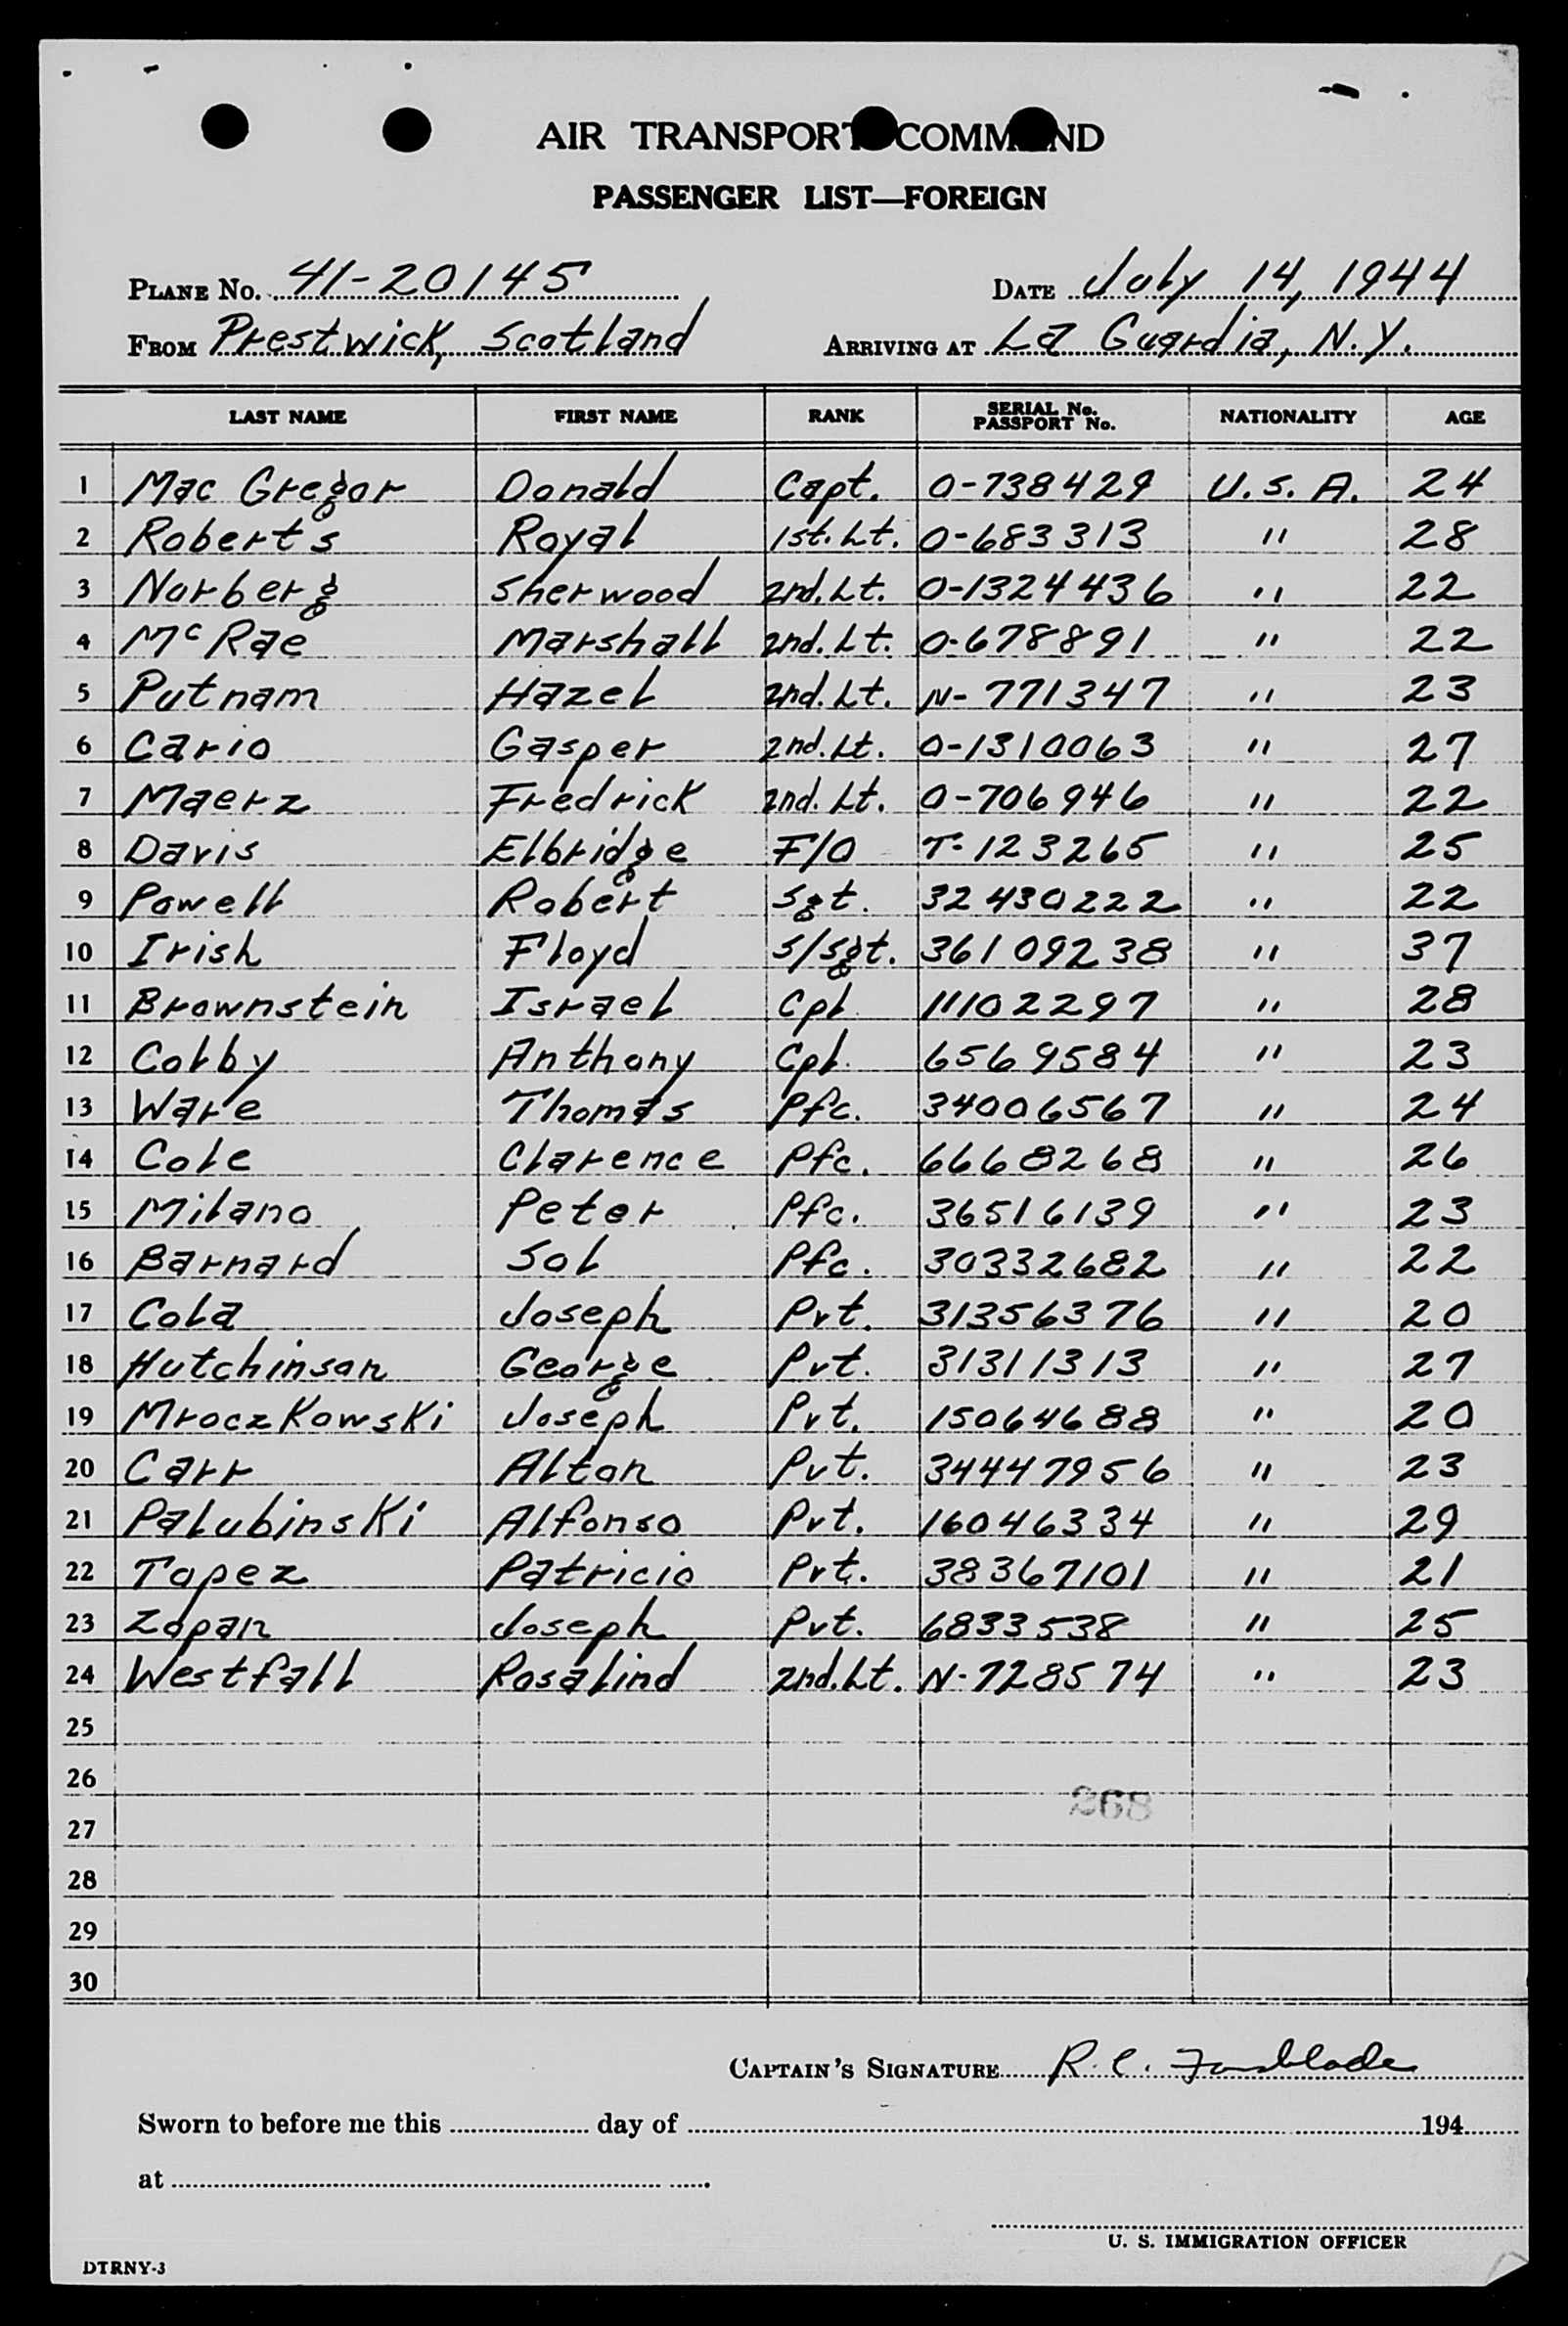 AIR TRANSPORT COMMAND
PASSENGER LIST—FOREIGN
PLANE No. 41-20145 DATE July 14, 1944
FROM Prestwick, Scotland ARRIVING AT La Guardia, N.Y.
LAST NAME FIRST NAME RANK SERIAL No. PASSPORT No. NATIONALITY AGE
1 Mac Gregor Donald Capt. O-738429 U.S.A. 24
2 Roberts Royal 1st. Lt. O-683313 " 28
3 Norberg Sherwood 2nd. Lt. O-1324436 " 22
4 McRae Marshall 2nd. Lt. O-678891 " 22
5 Putnam Hazel 2nd. Lt. N-771347 " 23
6 Cario Gasper 2nd. Lt. O-1310063 " 27
7 Maerz Fredrick 2nd. Lt. O-706946 " 22
8 Davis Elbridge F/O T-123265 " 25
9 Powell Robert Sgt. 32430222 " 22
10 Irish Floyd S/Sgt. 36109238 " 37
11 Brownstein Israel Cpl 11102297 " 28
12 Colby Anthony Cpl. 6569584 " 23
13 Ware Thomas Pfc. 34006567 " 24
14 Cole Clarence Pfc. 6668268 " 26
15 Milano Peter Pfc. 36516139 " 23
16 Barnard Sol Pfc. 30332682 " 22
17 Cola Joseph Pvt. 31356376 " 20
18 Hutchinson George Pvt. 31311313 " 27
19 Mroczkowski Joseph Pvt. 15064688 " 20
20 Carr Alton Pvt. 34447956 " 23
21 Palubinski Alfonso Pvt. 16046334 " 29
22 Topez Patricio Pvt. 38367101 " 21
23 Zopan Joseph Pvt. 6833538 " 25
24 Westfall Rosalind 2nd. Lt. N-728574 " 23
25
26
268
27
28
29
30
CAPTAIN'S SIGNATURE R. C.
Sworn to before me this day of 194
at
U. S. IMMIGRATION OFFICER
DTRNY-3